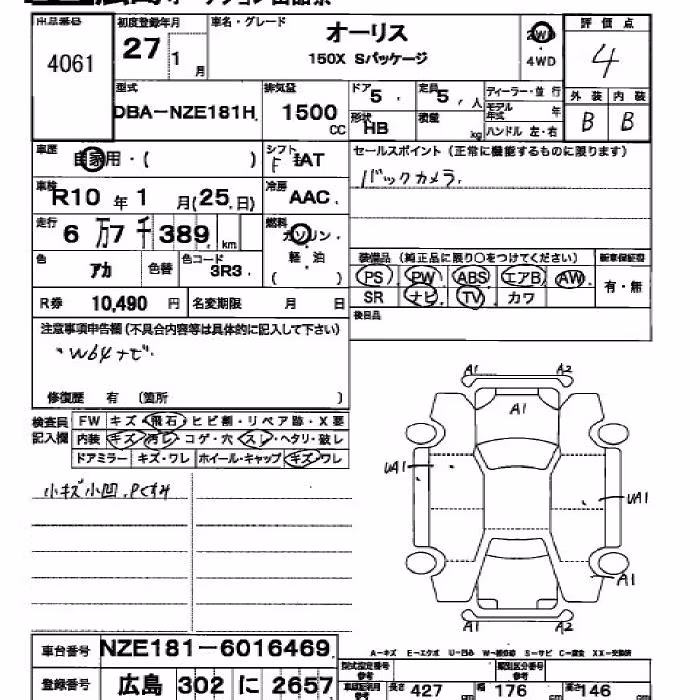 出品番号 初度登録年月 車名・グレード 評価点
4061 27 1月 オーリス 2WD 4
150X Sパッケージ 4WD
型式 排気量 ドア 5. 定員 5, 人 ディーラー・並行 外装 内装
DBA-NZE181H 1500 CC 形状 HB 積載 kg モデル年式 年 B B
ハンドル 左・右
車歴 自家用・( ) シフト F IAT セールスポイント(正常に機能するものに限ります)
車検 R10年1月(25.日) 冷房 AAC. バックカメラ.
走行 6万7千389. km 燃料 ガソリン・軽・油 ( )
色 アカ 色替 色コード 3R3. 装備品 (純正品に限り○をつけてください) 新車保証書
PS PW ABS エアB AW 有・無
R券 10,490 円 名変期限 月 日 SR ナビ TV カワ
注意事項申告欄(不具合内容等は具体的に記入して下さい) 後日品
・W64ナビ
修復歴 有 (箇所 )
検査員記入欄 FW キズ・飛石・ヒビ割・リペア跡・X要
内装 キズ・汚レ・コゲ・穴・スレ・ヘタリ・破レ
ドアミラー キズ・ワレ ホイール・キャップ キズ・ワレ
小キズ小凹.Pくすみ
A1 A2
A1
UA1
UA1
A1
A1 A2
車台番号 NZE181-6016469. A-キズ E-エクボ U-凹み W-補修跡 S-サビ C-腐食 XX-交換済
型式指定番号 参考 類別区分番号 参考
登録番号 広島 302 に 2657 長さ 427 cm 幅 176 cm 高さ 146 cm